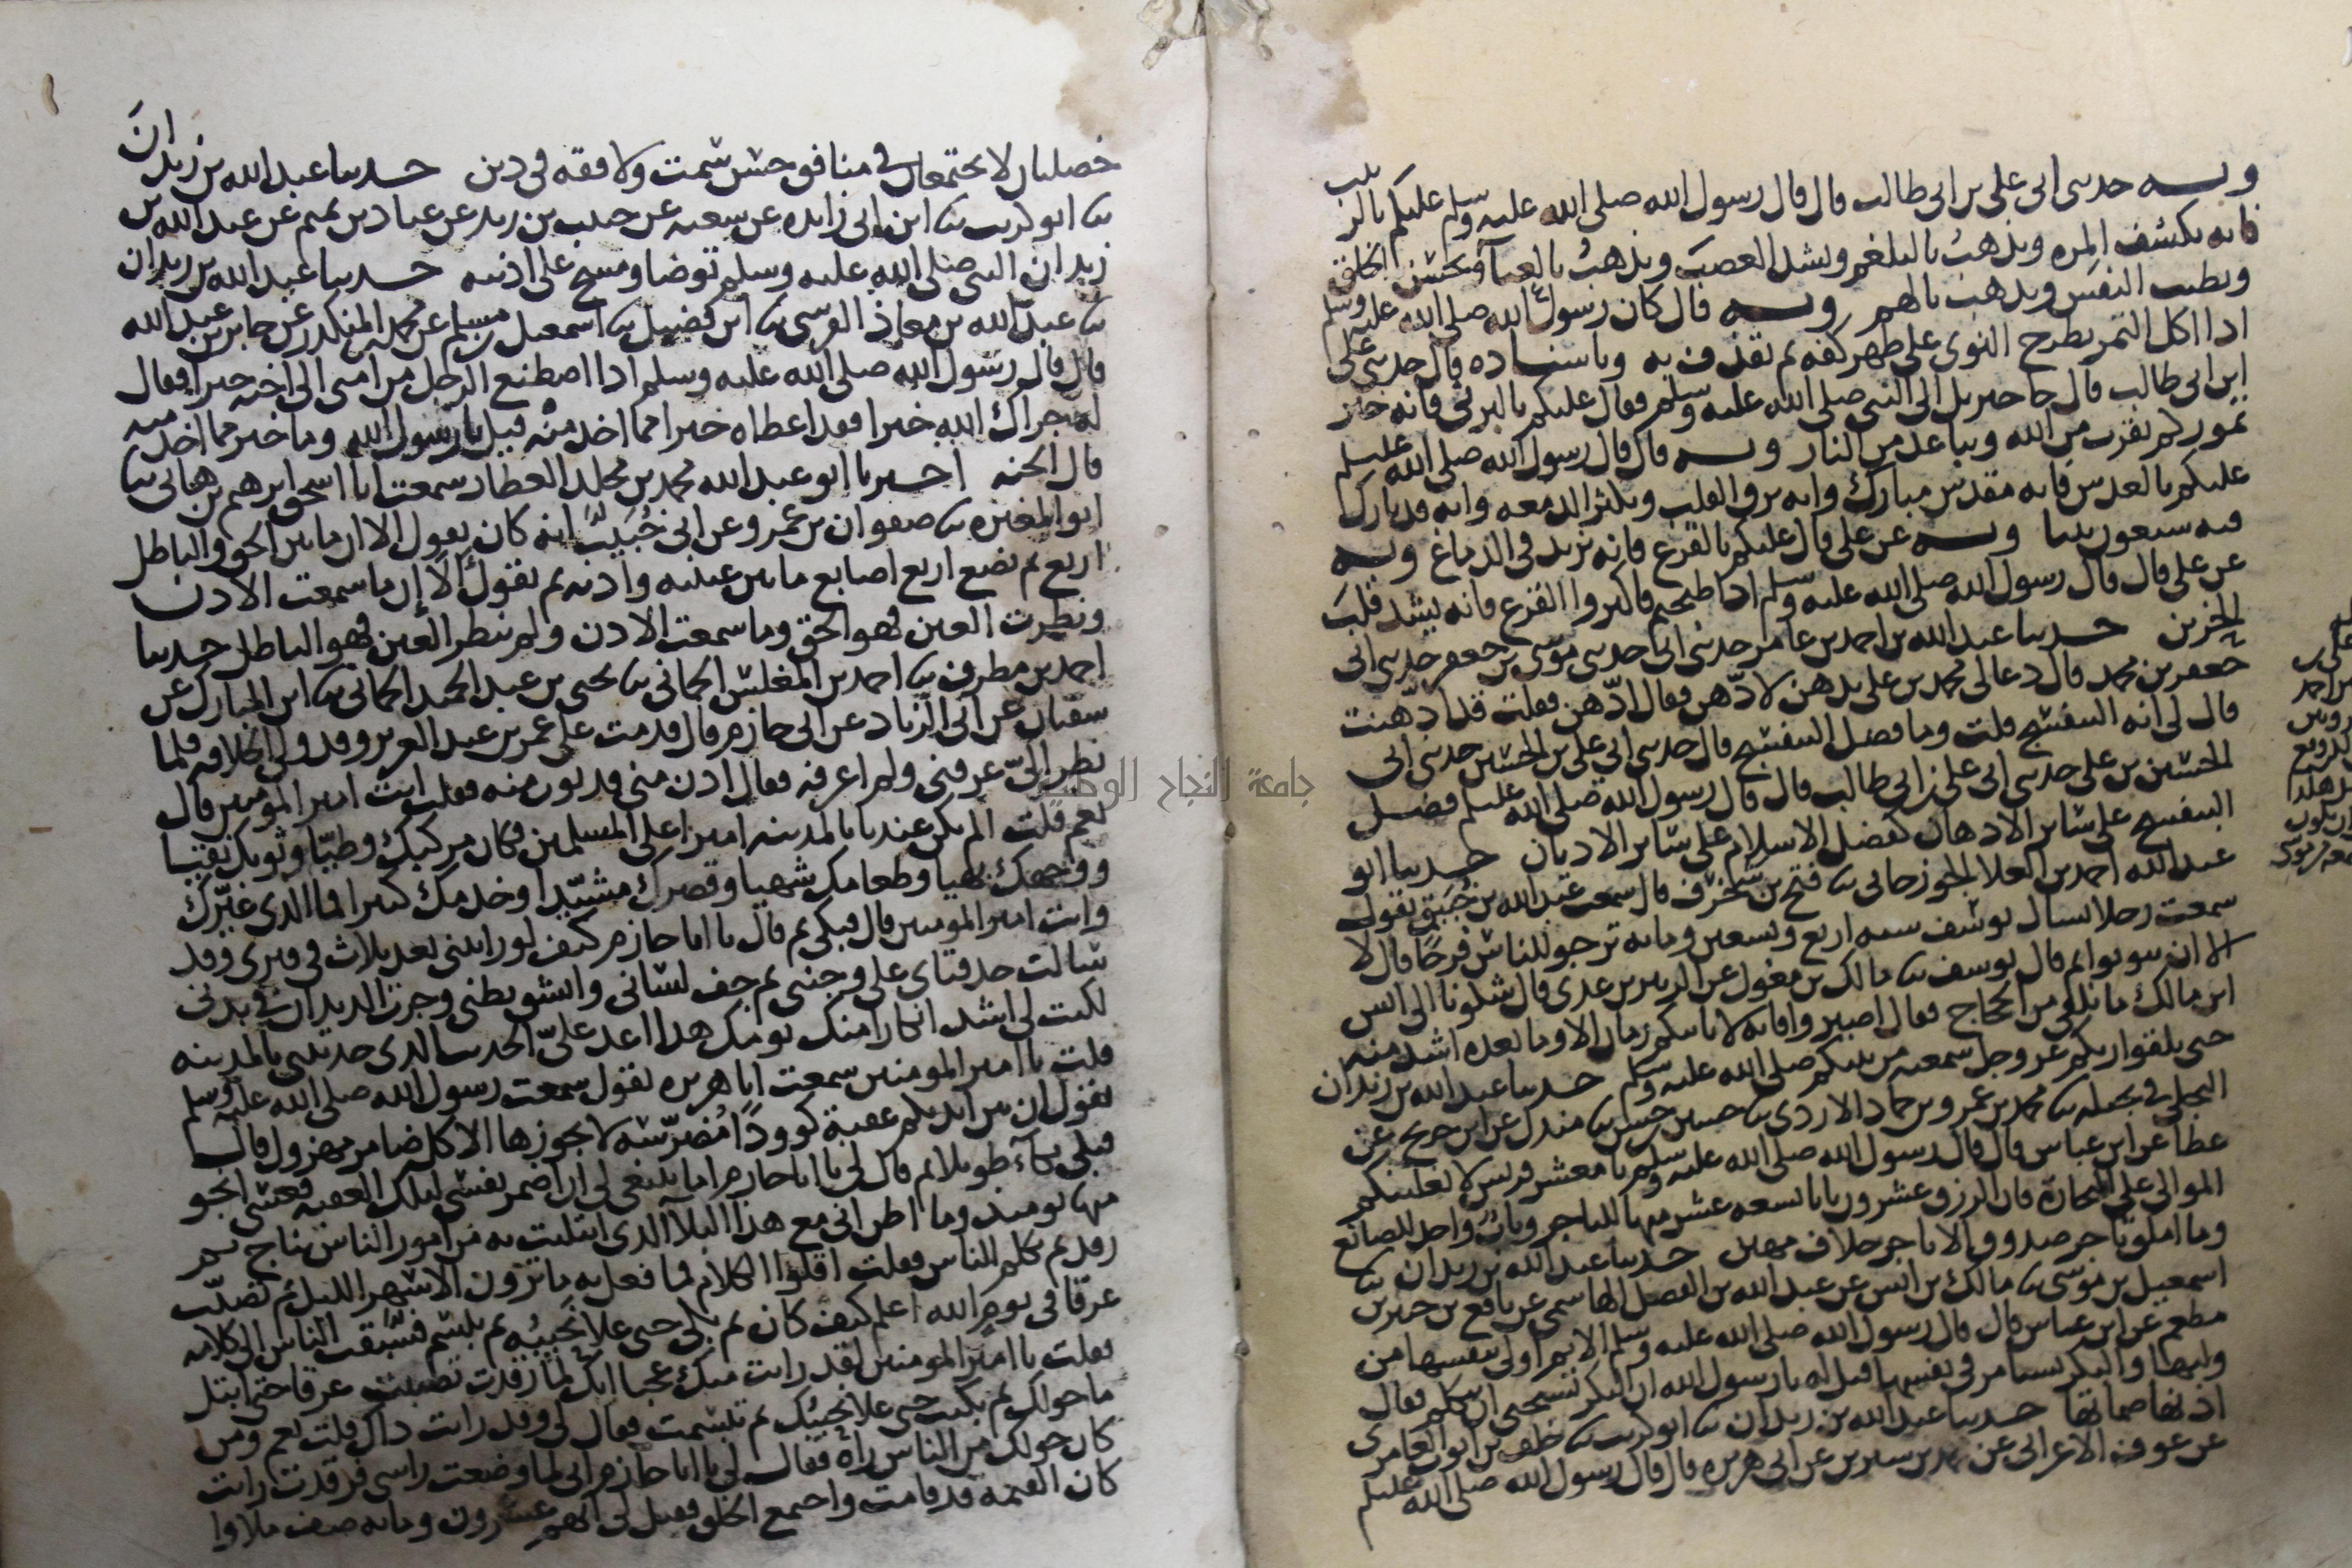 وبه حدثني ابي علي بن ابي طالب قال قال رسول الله صلى الله عليه وسلم عليكم بالزبيب
فانه يكشف المره ويذهب بالبلغم ويشد العصب ويذهب بالعيا ويحسن الخلق
ويطيب النفس ويذهب بالهم وبه قال كان رسول الله صلى الله عليه وسلم
اذا اكل التمر يطرح النوى على ظهر كفه ثم يقذف به وباسناده قال حدثني علي
ابن ابي طالب قال جا جبريل الى النبي صلى الله عليه وسلم فقال عليكم بالبرني فانه خير
تموركم يقرب من الله ويباعد من النار وبه قال قال رسول الله صلى الله عليه وسلم
عليكم بالعدس فانه مقدس مبارك وانه يرق القلب ويكثر الدمعه وانه قد بارك
فيه سبعون نبيا وبه عن علي قال عليكم بالقرع فانه يزيد في الدماغ وبه
عن علي قال قال رسول الله صلى الله عليه وسلم اذا طبختم فاكثروا القرع فانه يشد قلب
الحزين حدثنا عبد الله بن احمد بن عامر حدثني ابي حدثني موسى بن جعفر حدثني ابي
جعفر بن محمد قال دعا لي محمد بن علي بدهن لادهن فقال ادهن فقلت قد ادهنت
قال لي انه البنفسج قلت وما فضل البنفسج قال حدثني ابي علي بن الحسين حدثني ابي
الحسين بن علي حدثني ابي علي بن ابي طالب قال قال رسول الله صلى الله عليه وسلم فضل
البنفسج على سائر الادهان كفضل الاسلام على سائر الاديان حدثنا ابو
عبد الله احمد بن العلا الجوزجاني ثنا فتح بن شخرف قال سمعت عبد الله بن خبيق يقول
سمعت رجلا يسال يوسف سنه اربع وتسعين ومايه ترجو للناس فرجا قال لا
الا ان يتوبوا ثم قال يوسف ثنا مالك بن مغول عن الزبير بن عدي قال شكونا الى انس
ابن مالك ما نلقى من الحجاج فقال اصبروا فانه لا ياتيكم زمان الا وما بعده اشد منه
حتى تلقوا ربكم عز وجل سمعته من نبيكم صلى الله عليه وسلم حدثنا عبد الله بن زيدان
البجلي في بجيله ثنا محمد بن عمرو بن حماد الازدي ثنا حسين بن حسن ثنا مندل عن ابن جريج عن
عطا عن ابن عباس قال قال رسول الله صلى الله عليه وسلم يا معشر قريش لا تغلبنكم
الموالي على التجارة فان الرزق عشرون بابا تسعه عشر منها للتاجر وباب واحد للصانع
وما املق تاجر صدوق الا تاجر حلاف مهين حدثنا عبد الله بن زيدان ثنا
اسمعيل بن موسى ثنا مالك بن انس عن عبد الله بن الفضل الهاشمي عن نافع بن جبير بن
مطعم عن ابن عباس قال قال رسول الله صلى الله عليه وسلم الايم اولى بنفسها من
وليها والبكر تستامر في نفسها قيل له يا رسول الله ان البكر تستحيي ان تتكلم فقال
اذنها صماتها حدثنا عبد الله بن زيدان ثنا ابو كريب ثنا خلف بن ايوب العامري
عن عوف الاعرابي عن محمد بن سيرين عن ابي هريره قال قال رسول الله صلى الله عليه وسلم
خصلتان لا يجتمعان في منافق حسن سمت ولا فقه في دين حدثنا عبد الله بن زيدان
ثنا ابو كريب ثنا ابن ابي زايده عن شعبه عن حبيب بن زيد عن عباد بن تميم عن عبد الله بن
زيد ان النبي صلى الله عليه وسلم توضا ومسح على اذنيه حدثنا عبد الله بن زيدان
ثنا عبد الله بن معاذ القرشي ثنا ابن فضيل ثنا اسمعيل بن مسلم عن محمد بن المنكدر عن جابر بن عبد الله
قال قال رسول الله صلى الله عليه وسلم اذا اصطنع الرجل من امتي الى اخيه خيرا فقال
له جزاك الله خيرا فقد اعطاه خيرا مما اخذ منه قيل يا رسول الله وما خير مما اخذ منه
قال الجنه اخبرنا ابو عبد الله محمد بن مخلد العطار سمعت ابا اسحق ابرهيم بن هاني ثنا
ابو المغيره ثنا صفوان بن عمرو عن ابي انه كان يقول الا ان ما بين الحق والباطل
اربع ثم تضع اربع اصابع ما بين عينيه واذنه ثم يقول الا ان ما سمعت الاذن
ونظرت العين فهو الحق وما سمعت الاذن ولم تنظر العين فهو الباطل حدثنا
احمد بن مطرف ثنا احمد بن المغلس الحماني ثنا يحيى بن عبد الحميد الحماني ثنا ابن المبارك عن
سفيان عن ابي الزناد عن ابي حازم قال قدمت على عمر بن عبد العزيز وقد ولي الخلافه فلما
نظر الي عرفني ولم اعرفه فقال ادن مني فدنوت منه فقلت انت امير المومنين قال
نعم قلت الم تكن عندنا بالمدينه اميرا على المسلمين فكان مركبك وطيا وثوبك نقيا
ووجهك بهيا وطعامك شهيا وقصرك مشيدا وخدمك كثيرا فما الذي غيرك
وانت امير المومنين قال فبكى ثم قال يا ابا حازم كيف لو رايتني بعد ثلاث في قبري وقد
سالت حدقتاي على وجنتي ثم جف لساني وانشق بطني وجرت الديدان في بدني
لكنت لي اشد انكارا منك يومك هذا اعد علي الحديث الذي حدثتني بالمدينه
قلت يا امير المومنين سمعت ابا هريره يقول سمعت رسول الله صلى الله عليه وسلم
يقول ان بين ايديكم عقبة كوودا مضرسه لا يجوزها الا كل ضامر مهزول قال
فبكى بكاء طويلا ثم قال لي يا ابا حازم اما ينبغي لي ان اضمر نفسي لتلك العقبه فعسى انجو
منها يومئذ وما اظن اني مع هذا البلا الذي ابتليت به من امور الناس بناج ثم
رقد ثم تكلم الناس فقلت اقلوا الكلام فما فعل به ما ترون الا سهر الليل ثم تصبب
عرقا في يوم الله اعلم كيف كان ثم بكى حتى علا نحيبه ثم تبسم فسبقت الناس الى كلامه
فقلت يا امير المومنين لقد رايت منك عجبا انك لما رقدت تصببت عرقا حتى ابتل
ما حولك ثم بكيت حتى علا نحيبك ثم تبسمت فقال لي وقد رايت ذاك قلت نعم ومن
كان حولك من الناس راه فقال لي يا ابا حازم اني لما وضعت راسي فرقدت رايت
كان القيمه قد قامت واجتمع الخلق فقيل لي انهم عشرون ومايه صف ملاوا
جامعة النجاح الوطنية